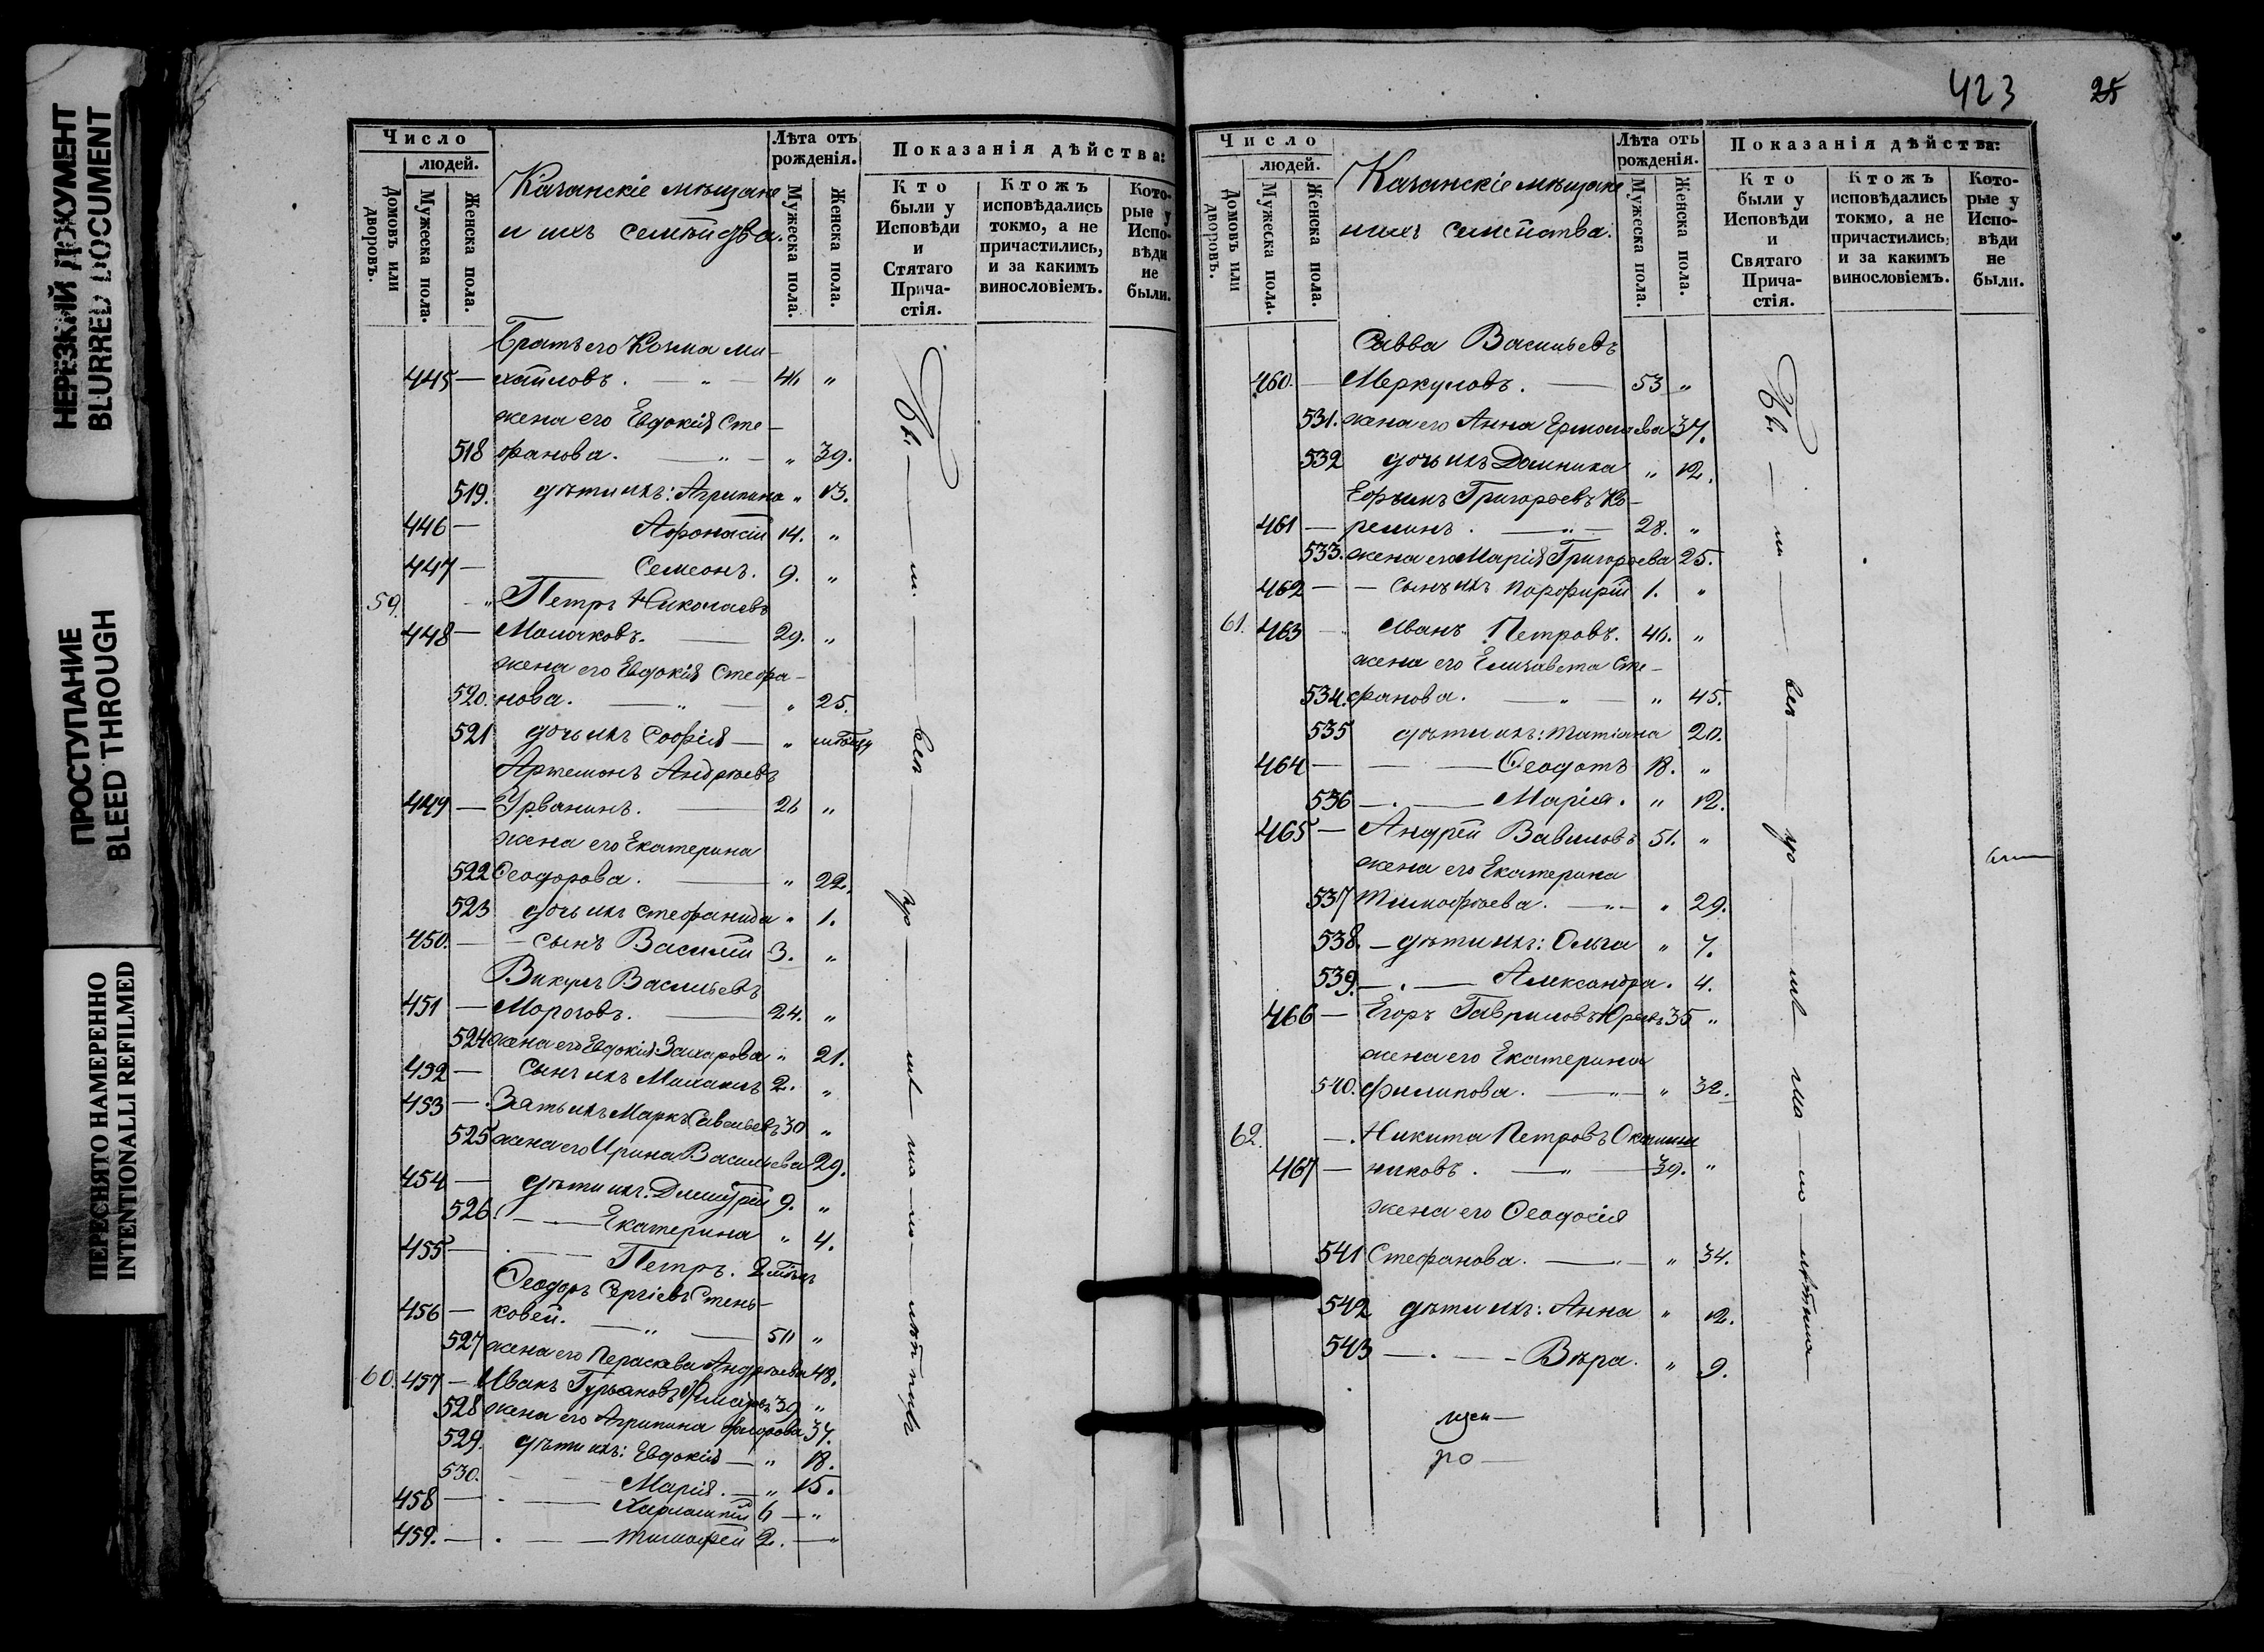 НЕРЕЗКИЙ ДОКУМЕНТ
BLURRED DOCUMENT
ПРОСТУПАНИЕ
BLEED THROUGH
ПЕРЕСНЯТО НАМЕРЕННО
INTENTIONALLI REFILMED
Число
людей.
Домовъ или дворовъ.
Мужеска пола.
Женска пола.
мѣщане
и ихъ
Лѣта отъ рожденія.
Мужеска пола.
Женска пола.
Показанія дѣйства:
Кто были у Исповѣди и Стятаго Прича-стія.
Ктожъ исповѣдались токмо, а не причастились, и за какимъ винословіемъ.
Кото-рые у Испо-вѣди не были.
Братъ его Козма Ми-
445 — хайловъ. — " — 46 "
жена его Евдокія Сте-
518 фанова. — " — " 39.
519. дѣти ихъ: Агрипина " 13.
446 — Афонасій 14. "
447 — Семеонъ. 9. "
59. " Петръ Николаевъ
448 — Молочковъ. — 29. "
жена его Евдокія Стефа-
520. нова. — " — " 25.
521 дочь ихъ Софія — "
Артемонъ Андреевъ
449 — Урванинъ. — 26 "
жена его Екатерина
522 Ѳеодорова. — " 22.
523 дочь ихъ Стефанида " 1.
450. — — сынъ Василій 3. "
Викулъ Васильевъ
451 — Морозовъ. — 24. "
524 жена его Евдокія Захарова " 21.
492 — сынъ ихъ Михаилъ 2. "
453 — Зять ихъ Маркъ Савельевъ 30 "
525 жена его Ирина Васильева 29.
454 — дѣти ихъ: Димитрій 9. "
526. — — Екатерина " 4.
455 — — Петръ. 2
Ѳеодоръ Сергіевъ Стень-
456 — ковей. — " — 50 "
527 жена его Параскева Андреева 48.
60. 457 — Иванъ Гурьановъ 39 "
528 жена его Агрипина 37.
529. дѣти ихъ: Евдокія — " 18.
530. — Марія. — " 15.
458 — . — Харлампій 6 — "
459. — . — Тимофей 2. — "
423 25
Число
людей.
Домовъ или дворовъ.
Мужеска пола.
Женска пола.
мѣщане
и ихъ семейства.
Лѣта отъ рожденія.
Мужеска пола.
Женска пола.
Показанія дѣйства:
Кто были у Исповѣди и Святаго Прича-стія.
Ктожъ исповѣдались токмо, а не причастились, и за какимъ винословіемъ.
Кото-рые у Испо-вѣди не были.
Савва Васильевъ
460. — Меркуловъ. — 53 "
531. жена его Анна Ермолаева 37.
532 дочь ихъ Домника " 12.
Ефимъ Григорьевъ Ко-
461 — ремкинъ. — " — 28. "
533. жена его Марія Григорьева 25.
462 — — сынъ ихъ Порфирій 1. "
61. 463 — Иванъ Петровъ. 46. "
жена его Елизавета Сте-
534. фанова. — " — " 45.
535 дѣти ихъ: Татіана 20.
464 — — — Ѳеодотъ 18. "
536 — . — Марія. " 12.
465 — Андрей Вавиловъ 51. "
жена его Екатерина
537 Тимофѣева. — " — " 29.
538. — дѣти ихъ: Ольга " 7.
539. — . — Александра. 4.
466 — Егоръ Гавриловъ 35 "
жена его Екатерина
540. Филипова. — " — " 32.
62. — . Никита Петровъ
467 — никовъ. — " — 39. "
жена его Ѳеодосія
541 Стефанова. — " — " 34.
542 дѣти ихъ: Анна " 12.
543 — . — — Вѣра. " 9.